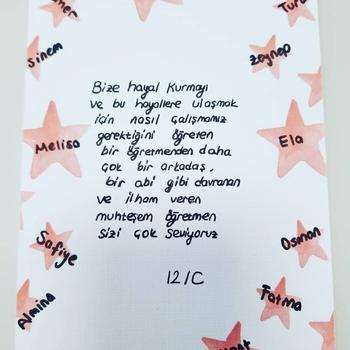 Sinem
Zeynep
Melisa
Ela
Bize hayal kurmayı
ve bu hayallere ulaşmak
için nasıl çalışmamız
gerektiğini öğreten
bir öğretmenden daha
çok bir arkadaş,
bir abi gibi davranan
ve ilham veren
muhteşem öğretmen
sizi çok seviyoruz
12/C
Safiye
Osman
Almina
Fatma